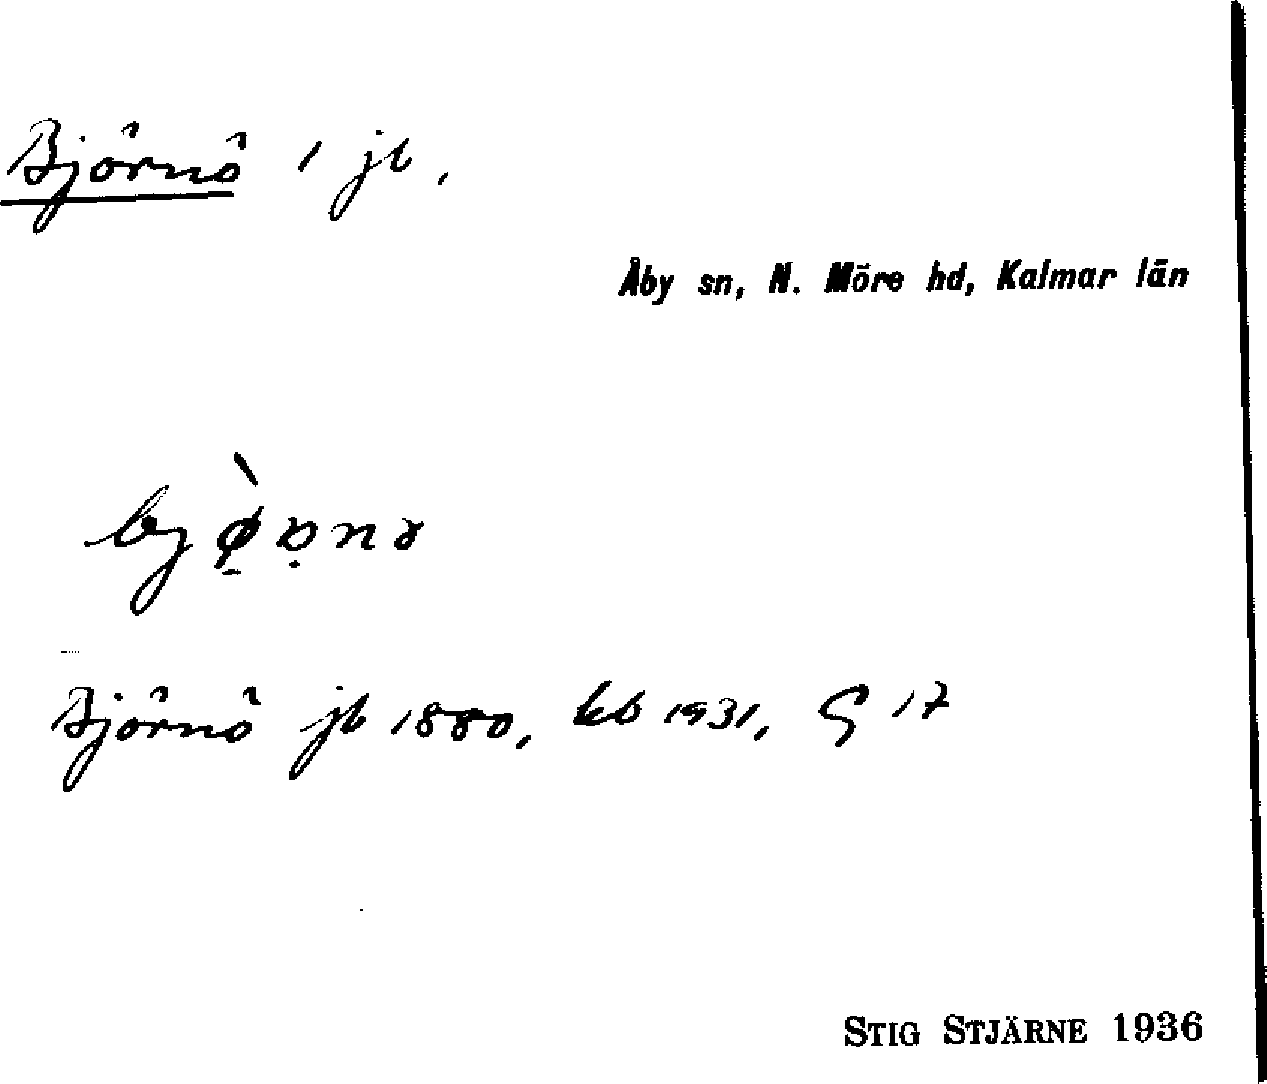 Björnö 1 jb,
Åby sn, N. Möre hd, Kalmar län
Björnö jb 1880, kb 1931, G 17
STIG STJÄRNE 1936